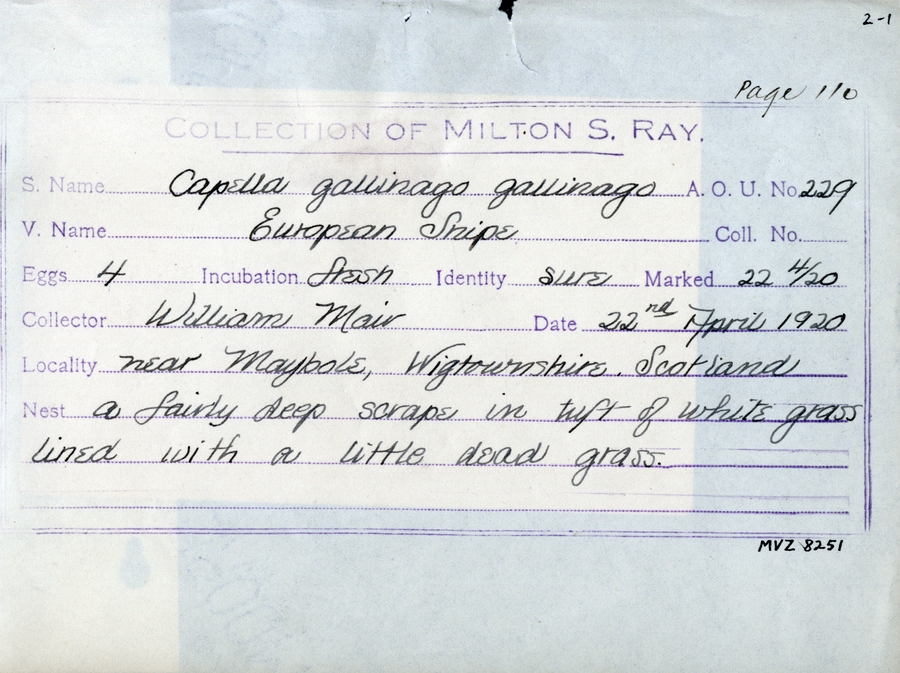 2-1
Page 110
COLLECTION OF MILTON S. RAY.
S. Name Capella gallinago gallinago A. O. U. No. 229
V. Name European Snipe Coll. No.
Eggs 4 Incubation fresh Identity sure Marked 22 4/20
Collector William Mair Date 22nd April 1920
Locality near Maybole, Wigtownshire. Scotland
Nest a fairly deep scrape in tuft of white grass
lined with a little dead grass.
MVZ 8251